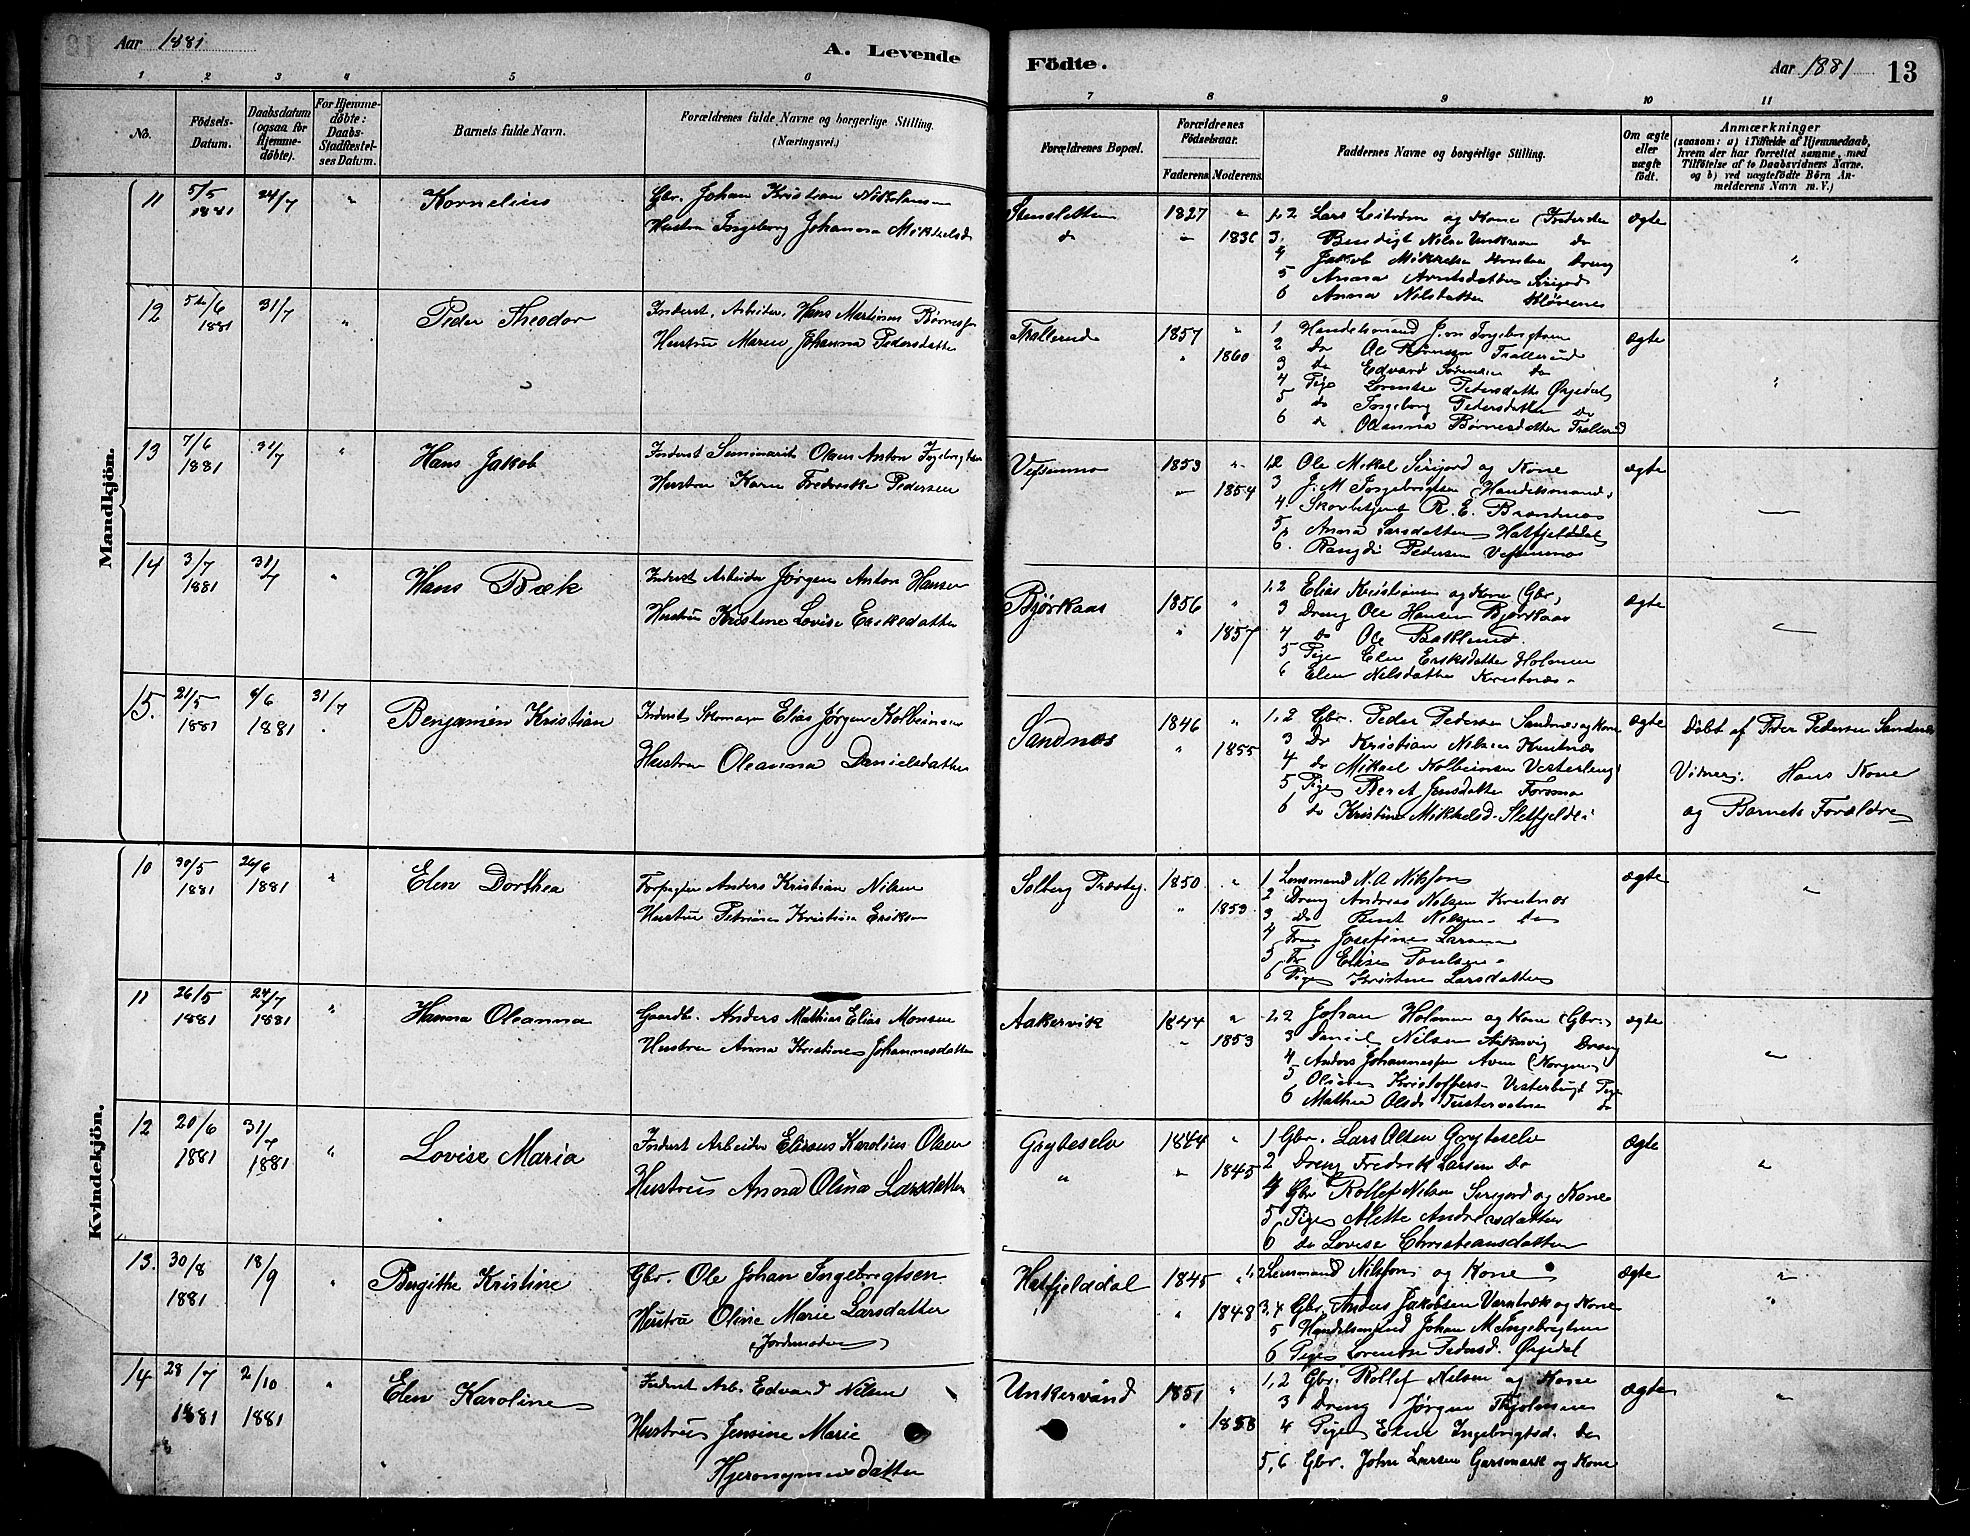 Aar 1881
A. Levende
Födte.
Aar 1881
13
1 2 3 4 5 6
7 8 9 10 11
No.
Födsels-Datum.
Daabsdatum (ogsaa for Hjemmedöbte).
For Hjemmedøbte: Daabs-Stadfæstelses Datum.
Barnets fulde Navn.
Forældrenes fulde Navne og borgerlige Stilling.
(Næringsvei.)
Forældrenes Bopæl.
Forældrenes Födselsaar.
Faderens. Moderens.
Faddernes Navne og borgerlige Stilling.
Om ægte eller uægte födt.
Anmærkninger
(saasom: a) i Tilfælde af Hjemmedaab,
hvem der har forrettet samme, med
Tilföielse af to Daabsvidners Navne.
og b) ved uægtefödte Börn An-
melderens Navn m. V.)
Mandkjön.
11 5/5 1881 24/7 " Kornelius
Gbr. Johan Kristian Niklausen
Hustru Ingeborg Johanna Mikkelsd
Stensletten 1827 "
do "
1, 2 Lars Leiström og Kone
3. Bendigt Nilsen Unkeren do
4 Jakob Dreng
5 Anna Arntsdatter
6 Anna Nilsdatter
ægte "
12 5/6 1881 31/7 " Peder Theodor
Inderst, Arbeider, Hans Martinus
Hustru Maren Johanna Pedersdatter
Trallerud 1857 "
" 1860
1 Handelsmand J. M. Ingebrigtsen
2 Do Ole Trallerud
3 do Edvard Sörensen do
4 Pige Lorentse Pedersdatter Örjedal
5 do Ingeborg Pedersdatter Do
6 do Oleanna Börnesdatter Trallerud
ægte "
13 7/6 1881 31/7 " Hans Jakob
Inderst Seminarist Olaus Anton Ingebrigtsen
Hustru Karen Fredrikke Pedersen
1853 "
" 1854
1,2 Ole Mikal og Kone
3 J. M Ingebrigtsen Handelsmand.
4. Skovbetjent R. E. Brandnæs
5, Anna Larsdatter Hatfjelddal
6. Ragndi Pedersen
ægte
14 3/7 1881 31/7 " Hans Bæk
Inderst Arbeider Jørgen Anton Hansen
Hustru Kristine Lovise Eriksdatter
Bjørkaas 1856 "
" 1857
1,2 Elias Kristiansen og Kone (Gbr.)
3 Dreng Ole Hansen Bjørkaas
4 Do Ole Baklund.
5 Pige Elen Eriksdatter Holmen
6 Elen Nilsdatter Krutnæs
ægte
15. 21/5 1881 6/6 1881 31/7 Benjamin Kristian
Inderst Skomager Elias Jørgen Kolbeinsen
Hustru Oleanna Danielsdatter
Sandnæs 1846 "
" 1855
1, 2 Gbr. Peder Pedersen Sandnæs og Kone
3 Do Kristian Nilsen Krutnæs
4 do Mikael Kolbeinsen
5, Pige Beret Jensdatter Forsmo
6 do Kristine Mikkelsd.
ægte
Döbt af Peder Pedersen Sandnæs
Vidner: Hans Kone
og Barnets Forældre
Kvindekjön.
10 30/5 1881 26/6 1881 " Elen Dorthea
Forpagter Anders Kristian Nilsen
Hustru Kristine Eriksen
Solberg 1850 "
" 1853
1 Lensmand N. A Nilsson
2 Dreng Andreas Nilsen Krutnæs
3, Do Bent Nilsen do
4 Fru Josefine Larsen
5, Fr Elise Poulsen
6 Pige Kristine Larsdatter
ægte "
11 26/5 1881 24/7 1881 " Hanna Oleanna
Gaardb. Anders Mathias Elias Monsen
Hustru Anna Kristine Johannesdatter
Aakervik 1844 "
" 1853
1, 2 Johan Holmen og Kone (Gbr.)
3 Daniel Nilsen Aakervig Dreng
4 Anders Johannessen
5 Kristoffers Pige
6 Mathea Olsd. do
ægte "
12 20/6 1881 31/7 1881 " Lovise Maria
Inderst Arbeider Elias Karolius Olsen
Hustru Anna Olina Larsdatter
Grybeselv 1844 "
" " 1845
1 Gbr. Lars Olsen Grybeselv
2 Dreng Fredrik Larsen Do
4 Gbr Rollef Nilsen og Kone
5 Pige Mette Andreasdatter
6 do Lovise Christiansdatter
ægte "
13. 30/8 1881 18/9 " Bergithe Kristine
Gbr. Ole Johan Ingebrigtsen
Hustru Oline Marie Larsdatter
(Jordemoder)
Hatfjelddal 1845 "
" " 1848
1, 2 Lensmand Nilsson og Kone
3, 4 Gbr. Anders Jakobsen Varntræk og Kone
5 Handelsmand Johan M Ingebrigtsen
6 Pige Lorentse Pedersd. Örjedal
ægte "
14 28/7 1881 2/10 1881 " Elen Karoline
Inderst Arb. Edvard Nilsen
Hustru Jensine Marie
Hjeronymusdatter
Unkervand 1851 "
" 1858
1, 2 Gbr. Rollef Nilsen og Kone
3 Dreng Jørgen
4 Pige Elen Ingebrigtsd. do
5, 6 Gbr. John Larsen Garsmark og Kone
ægte "